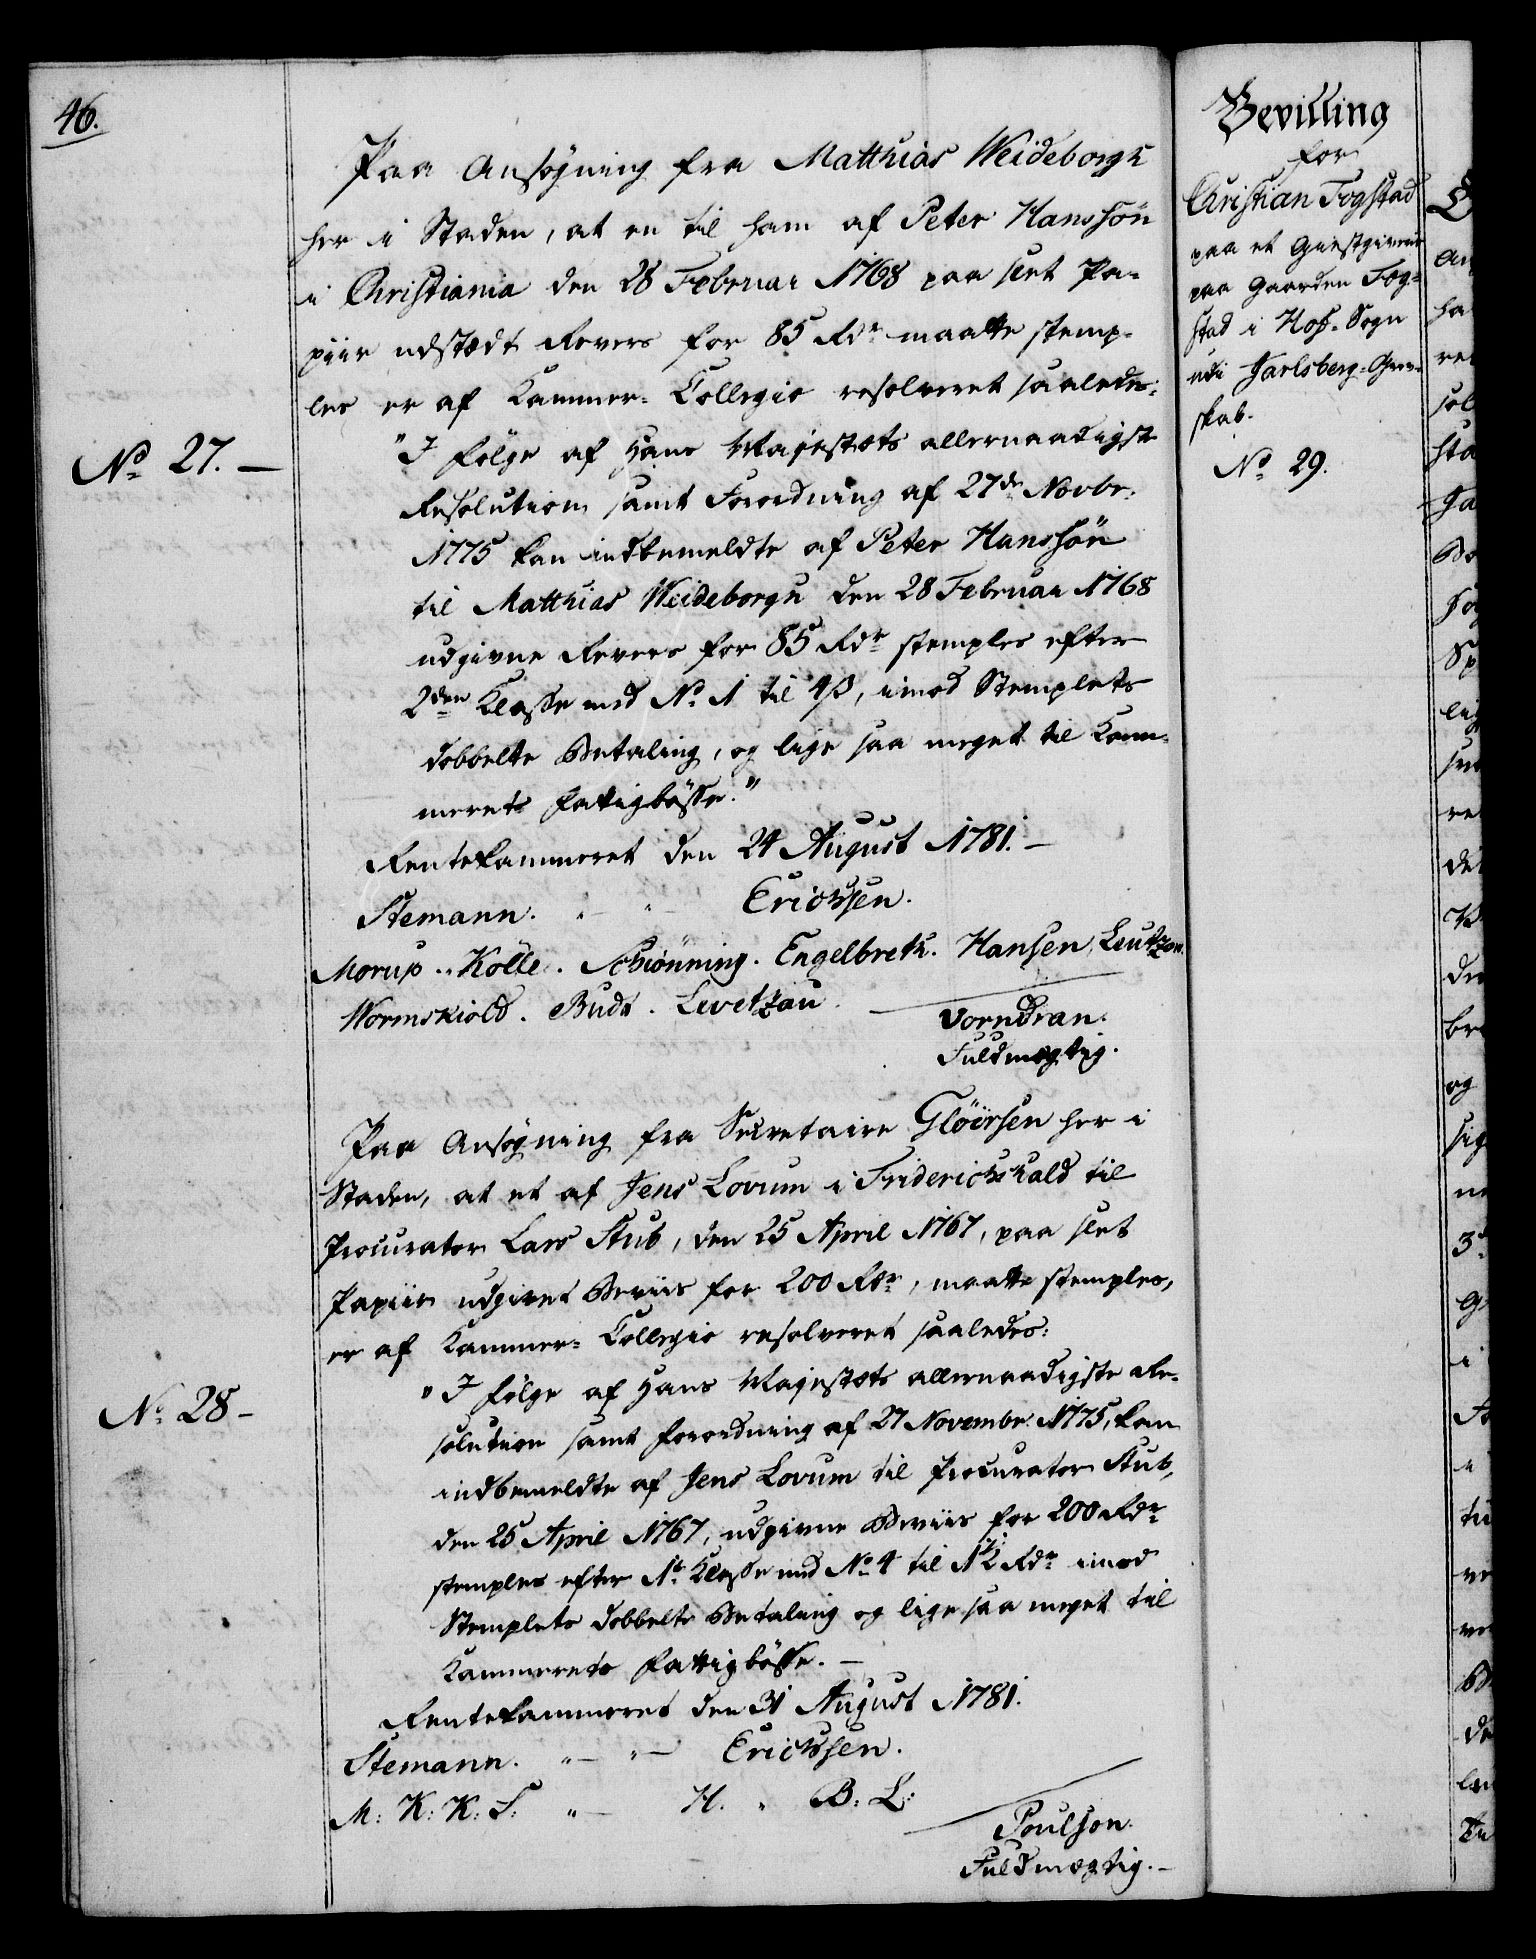 46.
Paa Ansøgning fra Matthias Weideborgh
her i Staden, at en til ham af Peter Hanssön
i Christiania den 28 Februar 1768 paa slet Pa-
piir udstædt Revers for 85 Rdr maatte stemp-
les er af Kammer-Collegio resolveret saaledes:
No 27.
"I følge af Hans Majestæts allernaadigste
Resolution samt Forordning af 27de Novbr:
1775 kan indbemeldte af Peter Hanssön
til Matthias Weideborgh den 28 Februar 1768
udgivne Revers for 85 Rdr stemples efter
2den Klasse med No. 1 til 4 ß, imod Stemplets
dobbelte Betaling, og lige saa meget til Kam-
merets Fattigbøsse."
Rentekammeret den 24 August 1781.
Stemann. " — " Erichssen.
Morup. Kölle. Schiønning. Engelbreth. Hansen, Leutzon.
Wormskiold. Budt. Levetzau.
Vorndran.
Fuldmægtig.
Paa Ansøgning fra Secretaire Glöersen her i
Staden, at et af Jens Lovum i Friderichshald til
Procurator Lars Stub, den 25 April 1767, paa slet
Papiir udgivet Beviis for 200 Rdr, maatte stemples,
er af Kammer-Collegio resolveret saaledes:
No 28 -
"I følge af Hans Majestæts allernaadigste Re-
solution samt Forordning af 27 Novembr 1775, kan
indbemeldte af Jens Lovum til Procurator Stub,
den 25 April 1767, udgivne Beviis for 200 Rdr
stemples efter 1te Klasse med No 4 til 1½ Rdr imod
Stemplets dobbelte Betaling og lige saa meget til
Kammerets Fattigbøsse. —
Rentekammeret den 31 August 1781.
Stemann. " — " — Erichssen.
M: K: K: S: " — H. " B: L:
Poulson.
Fuldmægtig. —
Bevilling
for
Christian Fogstad
paa et Giæstgiverie
paa Gaarden Fog-
stad i Hof-Sogn
udi Jarlsberg-Grev-
skab.
No 29.